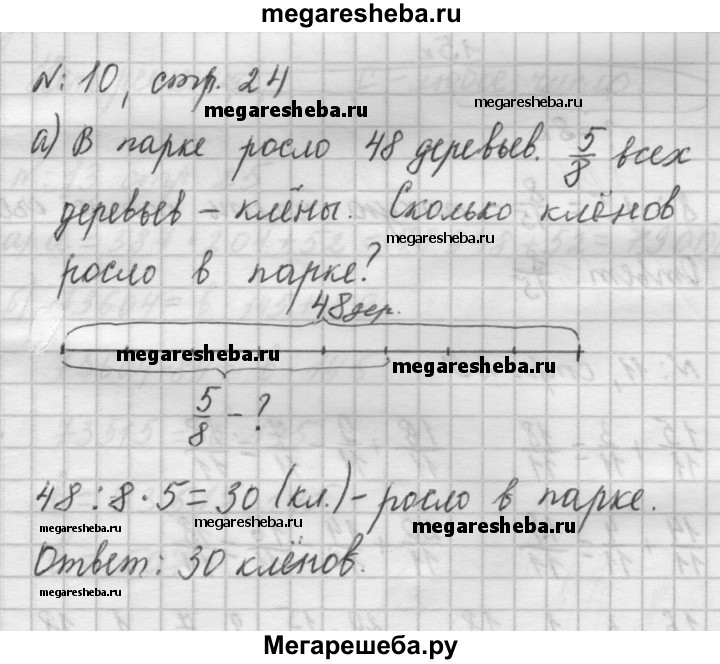 megaresheba.ru
№ 10, стр. 24
megaresheba.ru
megaresheba.ru
а) В парке росло 48 деревьев. 5/8 всех
деревьев – клёны. Сколько клёнов
megaresheba.ru
росло в парке?
48 дер.
megaresheba.ru
megaresheba.ru
5/8 – ?
48 : 8 · 5 = 30 (кл.) – росло в парке.
megaresheba.ru
megaresheba.ru
megaresheba.ru
Ответ: 30 клёнов.
megaresheba.ru
Мегарешеба.ру